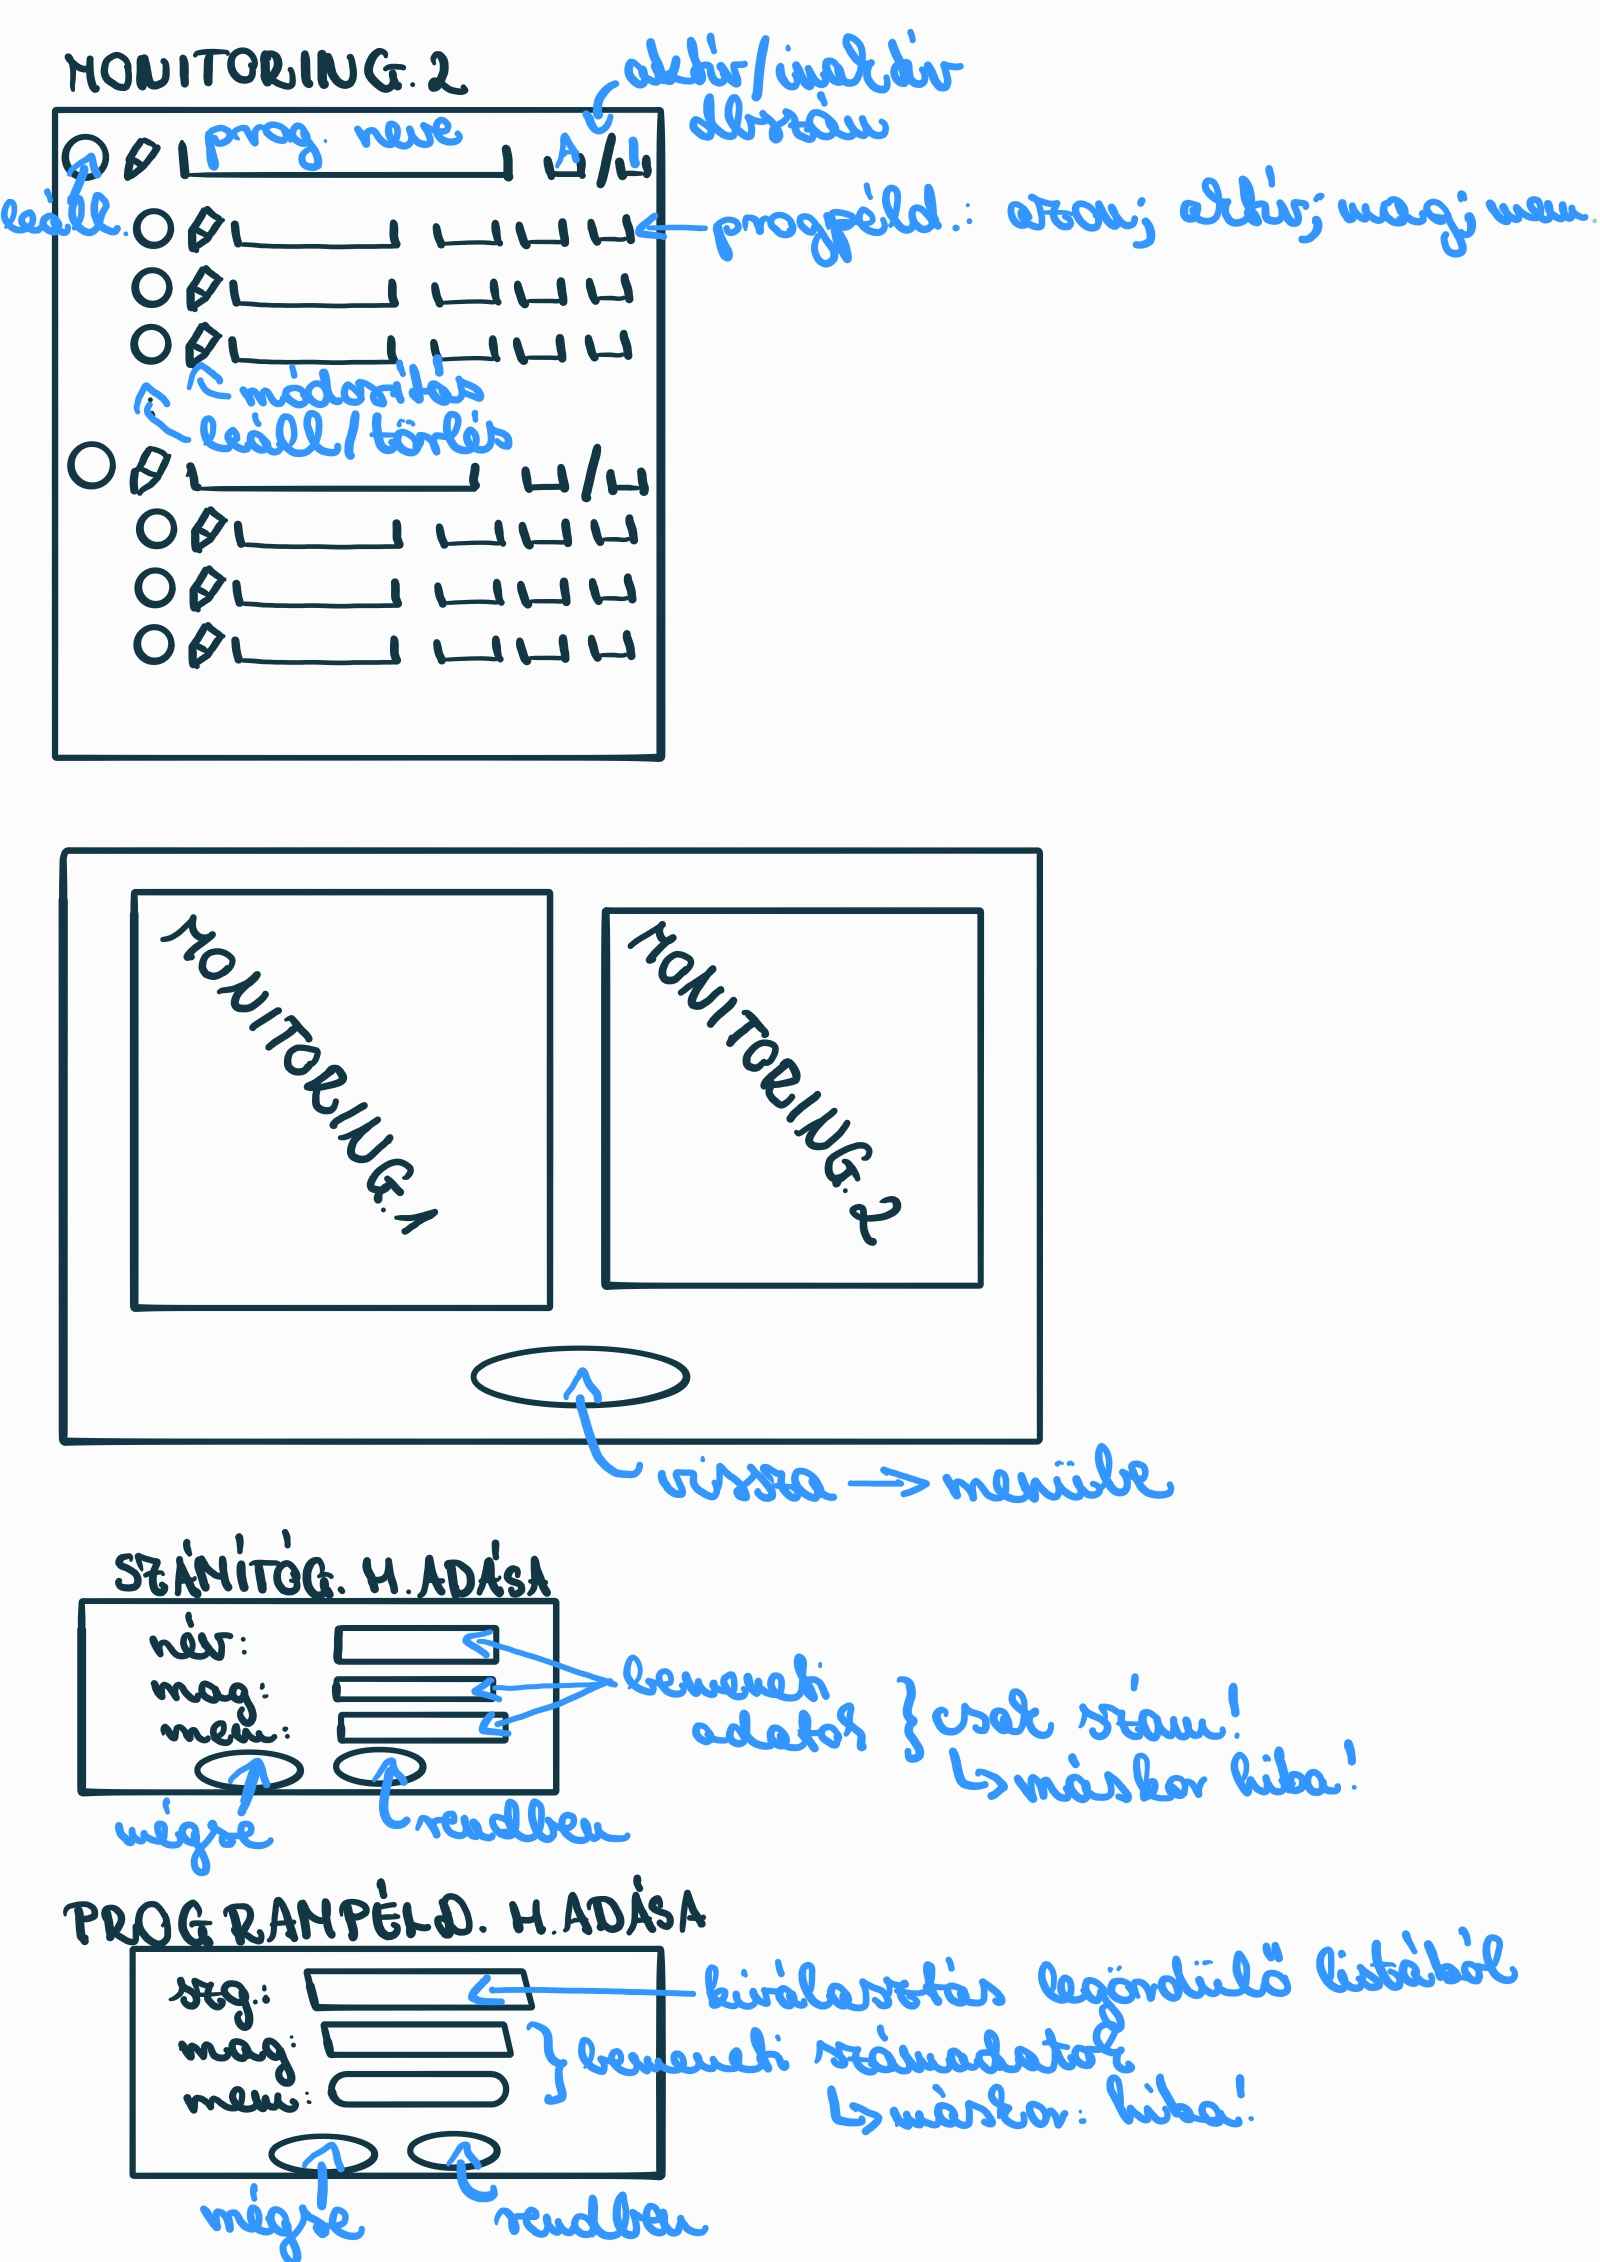 MONITORING.2.
aktív/inaktív
dbszám
prog. neve
A/I
leáll.
progpéld.: azon; aktív; mag; mem.
módosítás
leáll/törlés
MONITORING.1
MONITORING.2
vissza → menübe
SZÁMÍTÓG. M.ADÁSA
név:
mag:
mem:
bemeneti
adatok } csak szám!
↳ máskor hiba!
mégse
rendben
PROGRAMPÉLD. M.ADÁSA
szg.:
kiválasztás legördülő listából
mag:
mem:
} bemeneti számadatok
↳ máskor: hiba!
mégse
rendben